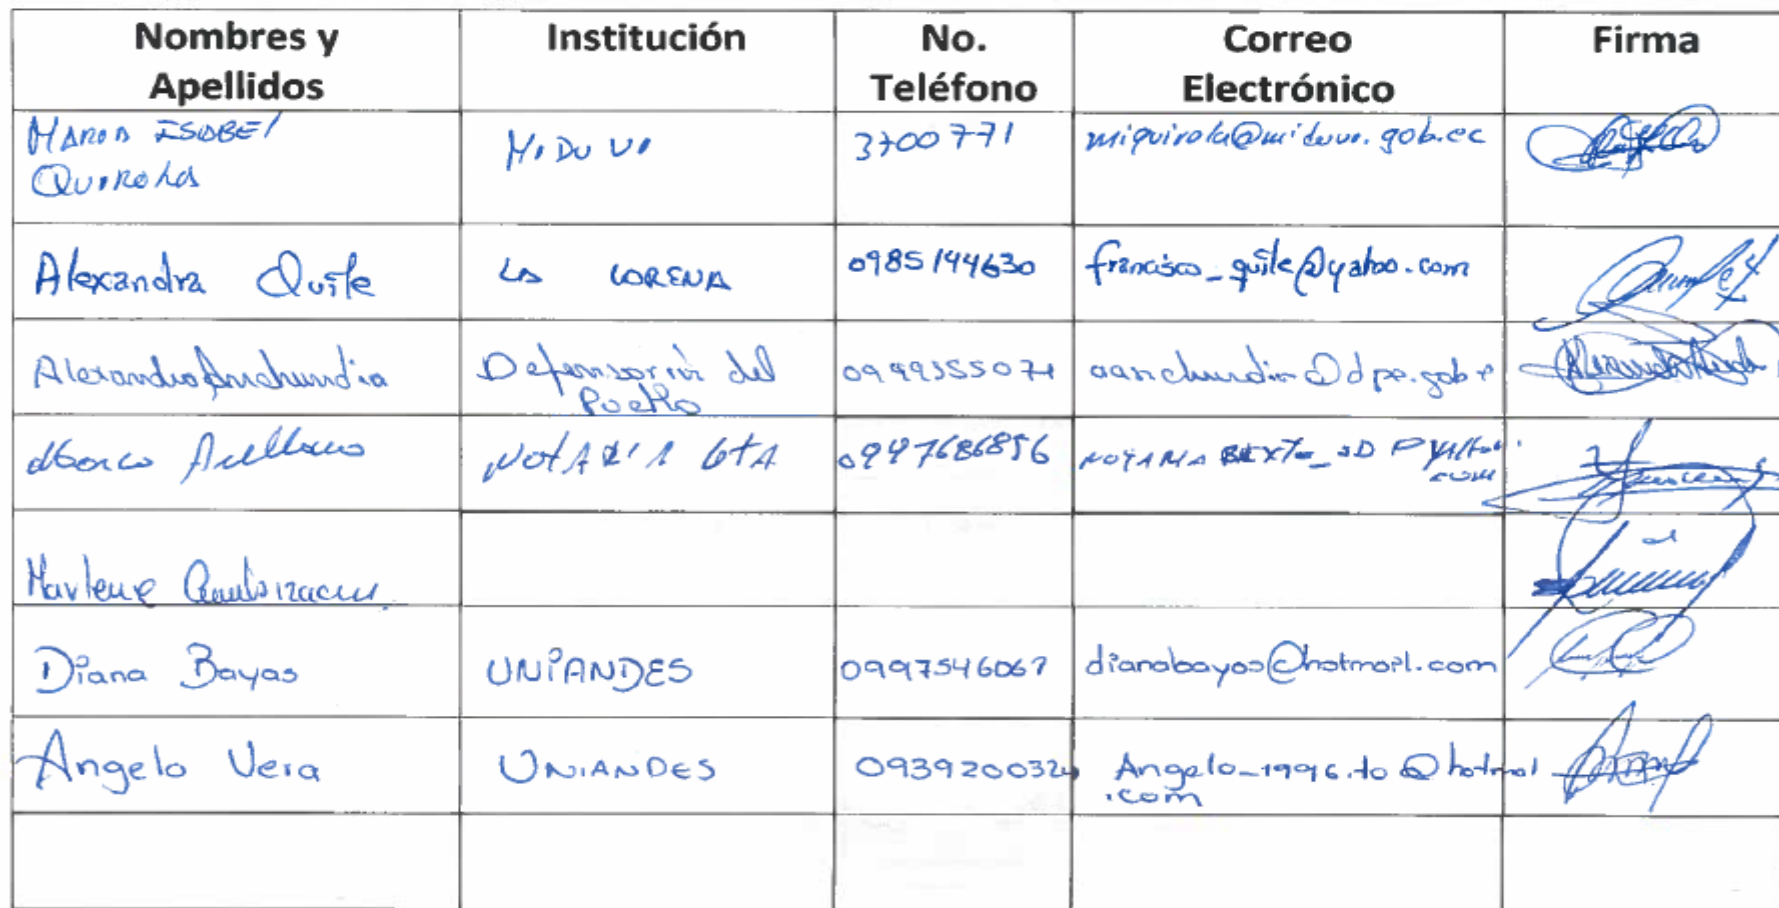 Nombres y Apellidos Institución No. Teléfono Correo Electrónico Firma
MARIA ISABEL QUIROLA MIDUVI 3700771 miquirola@miduvi.gob.ec
Alexandra Quile LA LORENA 0985144630 francisco_quile@yahoo.com
Alexandra Anchundia Defensoría del Pueblo 0999355074 aanchundia@dpe.gob.e
Marco Arellano NOTARIA 6TA 0997686856
Marlene
Diana Bayas UNIANDES 0997546067 dianabayas@hotmail.com
Angelo Vera UNIANDES 0939200324 Angelo_1996.to@hotmail.com